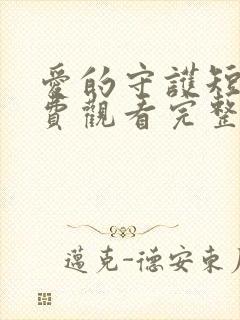 愛的守護短
費觀看完整
邁克-德安東